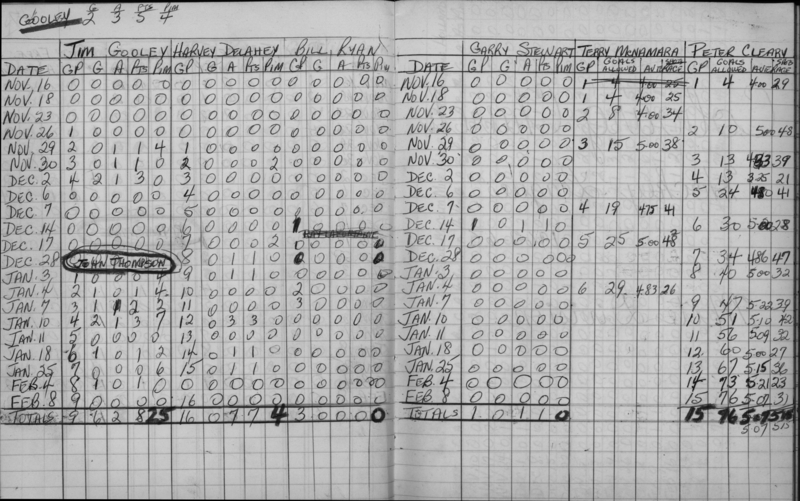 GOOLEY G 2 A 3 PTS 5 PIM 4
JIM GOOLEY HARVEY DELAHEY BILL RYAN
DATE GP G A PTS PIM GP G A PTS PIM GP G A PTS PIM
NOV. 16 0 0 0 0 0 0 0 0 0 0 0 0 0 0 0
NOV. 18 0 0 0 0 0 0 0 0 0 0 0 0 0 0 0
NOV. 23 0 0 0 0 0 0 0 0 0 0 0 0 0 0 0
NOV. 26 1 0 0 0 0 0 0 0 0 0 0 0 0 0 0
NOV. 29 2 0 1 1 4 1 0 0 0 0 0 0 0 0 0
NOV. 30 3 0 1 1 0 2 0 0 0 2 0 0 0 0 0
DEC. 2 4 2 1 3 0 3 0 0 0 0 0 0 0 0 0
DEC. 6 0 0 0 0 0 4 0 0 0 0 0 0 0 0 0
DEC. 7 0 0 0 0 0 5 0 0 0 0 0 0 0 0 0
DEC. 14
DEC. 17
DEC. 28 JOHN THOMPSON 8 0 1 1
JAN. 3 9 0 1 1
JAN. 4 2 1 0 1 4 10 0 0 0 0 2 0 0 0 0
JAN. 7 11 0 0 0 0 3 0 0 0 0
JAN. 10 4 2 1 3 7 12 0 3 3 0 0 0 0 0 0
JAN. 11 5 0 0 0 0 13 0 0 0 0 0 0 0 0 0
JAN. 18 6 1 0 1 2 14 0 1 1 0 0 0 0 0 0
JAN. 25 7 0 0 0 6 15 0 1 1 0 0 0 0 0 0
FEB. 4 8 1 0 1 0 0 0 0 0 0 0 0 0 0 0
FEB. 8 9 0 0 0 0 16 0 0 0 0 0 0 0 0 0
TOTALS 9 6 2 8 25 16 0 7 7 4 3 0 0 0 0
GARRY STEWART TERRY McNAMARA PETER CLEARY
DATE GP G A PTS PIM GP GOALS ALLOWED AVERAGE GP GOALS ALLOWED AVERAGE
NOV. 16 0 0 0 0 0 1 4 4.00 25 1 4 4.00 29
NOV. 18 0 0 0 0 0 1 4 4.00 25
NOV. 23 0 0 0 0 0 2 8 4.00 34
NOV. 26 0 0 0 0 0 2 10 5.00 48
NOV. 29 0 0 0 0 0 3 15 5.00 38
NOV. 30 0 0 0 0 0 3 13 39
DEC. 2 0 0 0 0 0 4 13 3.25 21
DEC. 6 0 0 0 0 0 5 24 41
DEC. 7 0 0 0 0 0 4 19 4.75 41
DEC. 14 1 0 1 1 0 6 30 5.00 28
DEC. 17 0 0 0 0 0 5 25 5.00 48
DEC. 28 0 0 0 0 0 7 34 4.86 47
JAN. 3 0 0 0 0 0 8 40 5.00 32
JAN. 4 0 0 0 0 0 6 29 4.83 26
JAN. 7 0 0 0 0 0 9 47 5.22 39
JAN. 10 0 0 0 0 0 10 51 5.10 42
JAN. 11 0 0 0 0 0 11 56 5.09 32
JAN. 18 0 0 0 0 0 12 60 5.00 27
JAN. 25 0 0 0 0 0 13 67 5.15 36
FEB. 4 0 0 0 0 0 14 73 5.21 23
FEB. 8 0 0 0 0 0 15 76 5.07 31
TOTALS 1 0 1 1 0 15 76 5.07
5.07 515